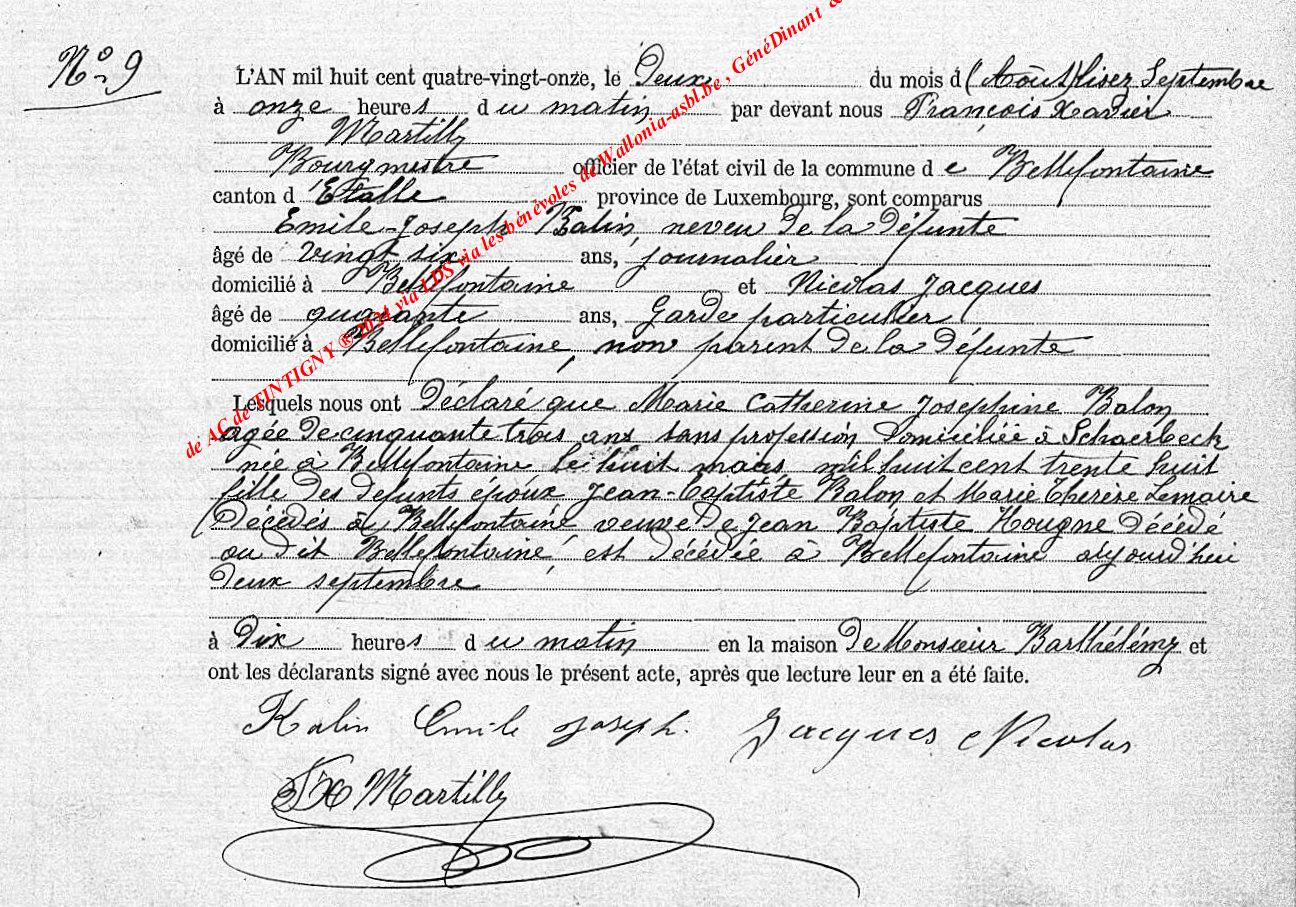 N° 9
L'AN mil huit cent quatre-vingt-onze, le Deux du mois d (Août) lisez Septembre
à onze heures du matin par devant nous François Xavier
Martilly
Bourgmestre officier de l'état civil de la commune de Bellefontaine
canton d'Etalle province de Luxembourg, sont comparus
Emile-Joseph Kalin, neveu de la défunte
âgé de vingt six ans, journalier
domicilié à Bellefontaine et Nicolas Jacques
âgé de quarante ans, Garde particulier
domicilié à Bellefontaine, non parent de la défunte
Lesquels nous ont Déclaré que Marie Catherine Josephine Balon
agée de cinquante trois ans sans profession domiciliée à Schaerbeck
née à Bellefontaine le huit mars mil huit cent trente huit
fille des défunts époux Jean-Baptiste Balon et Marie Therèse Lemaire
Décédés à Bellefontaine veuve de Jean Baptiste Hougne décédé
au dit Bellefontaine, est décédée à Bellefontaine aujourd'hui
deux septembre
à Dix heures du matin en la maison De Monsieur Barthélémy et
ont les déclarants signé avec nous le présent acte, après que lecture leur en a été faite.
Kalin Emile Joseph. Jacques Nicolas
FX Martilly
de AC de TINTIGNY ® 2024 via LDS via les bénévoles de Wallonia-asbl.be , GénéDinant &